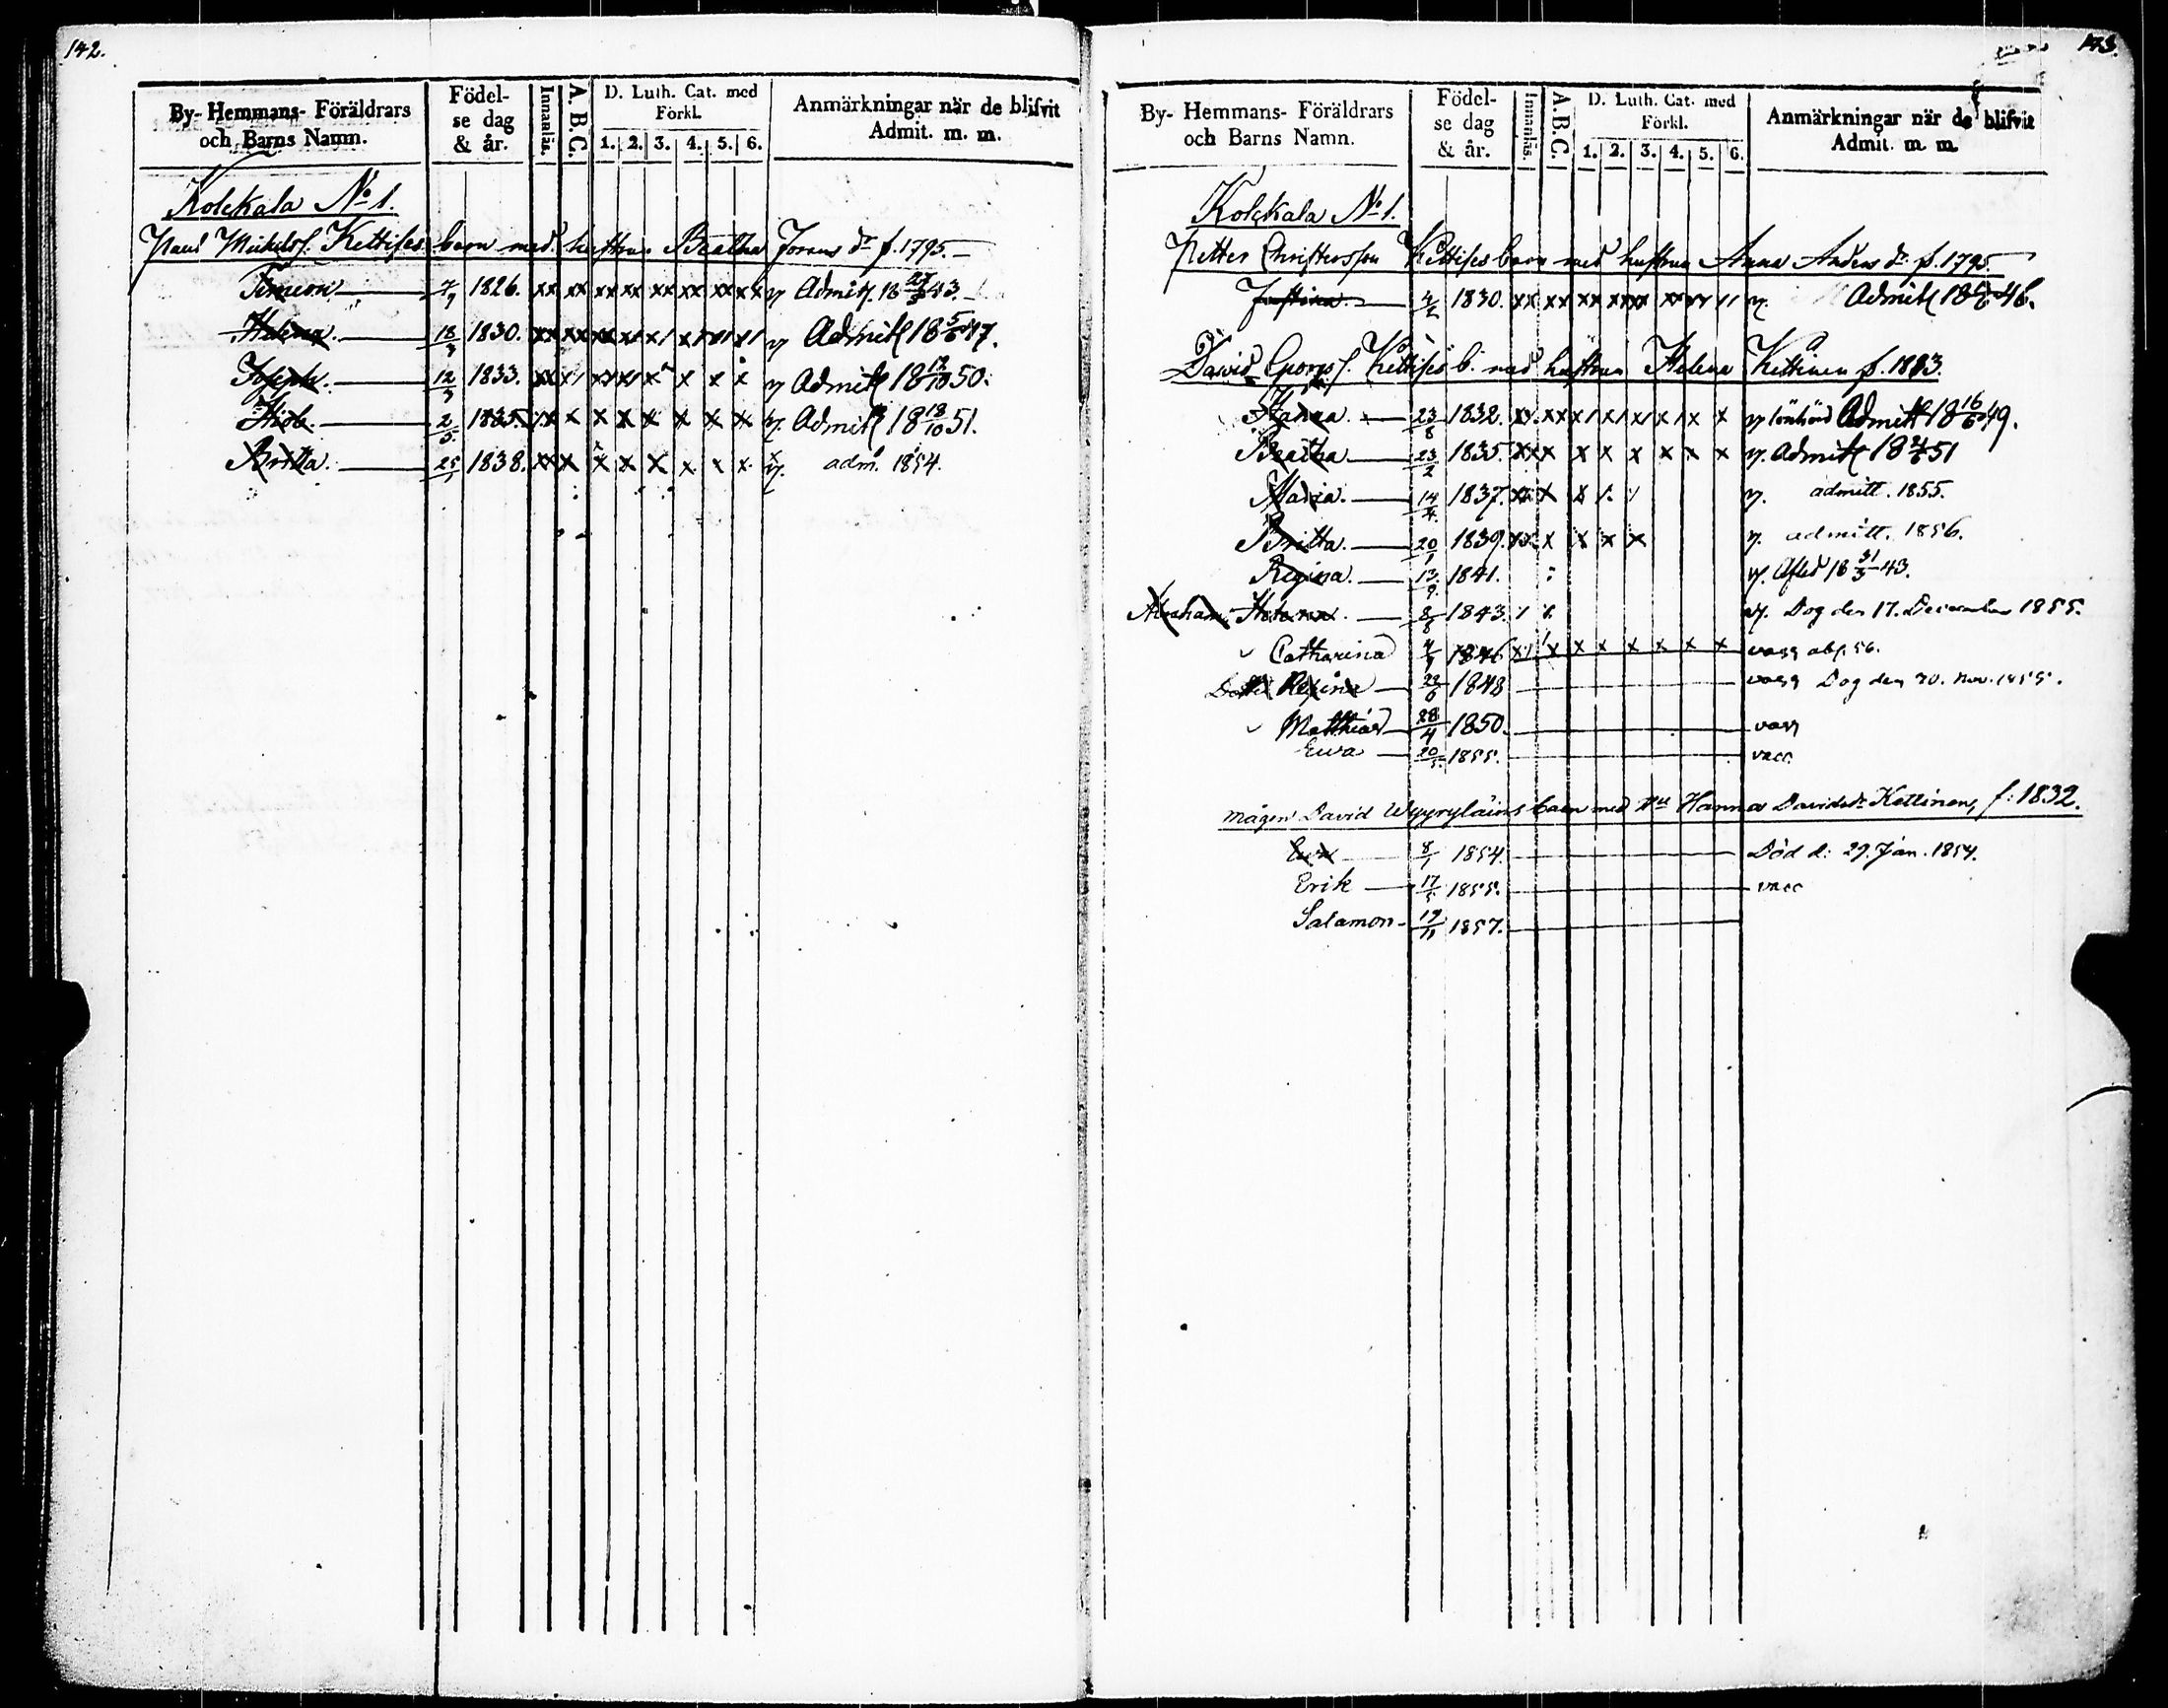 142.
By- Hemmans- Föräldrars och Barns Namn.
Födelse dag & år.
Innanläs.
A. B. C.
D. Luth. Cat. med Förkl.
1. 2. 3. 4. 5. 6.
Anmärkningar när de blifvit Admit. m. m.
Kolckala No 1.
Paul Michelss. Kettises barn med hustrun Beatha Jörans dr f. 1795.
Simeon 7/9 1826. xx xx xx xx xx xx xx xx v Admitt. 18 27/3 43.
Helena 18/3 1830. v Admitt 18 5/6 47.
Joseph. 12/3 1833. v Admitt 18 13/10 50.
Hiob. 2/5 1835. x x x x x x x x v. Admitt 18 18/10 51.
Britta. 25/1 1838. xx x x x x x x x v. adm. 1854.
143.
By- Hemmans- Föräldrars och Barns Namn.
Födelse dag & år.
Innanläs.
A. B. C.
D. Luth. Cat. med Förkl.
1. 2. 3. 4. 5. 6.
Anmärkningar när de blifvit Admit. m. m.
Kolckala No 1.
Petter Christersson Kettises barn med hustrun Anna Anders dr f. 1795.
Justina. 1830. v. Admitt 46.
David Georgs. Kettises b. med hustrun Helena Kettinen f. 1803.
Hanna. 23/8 1832. v Admitt 18 16/6 49.
Beatha 23/2 1835. xx x x x x x x x v. Admitt 51
Maria. 14/4 1837. v. admitt. 1855.
Britta. 20/1 1839. xx x x x x v. admitt. 1856.
Regina. 13/9 1841. v. Afled 18 31/3 43.
Abraham 8/8 1843. v. Dog den 17. December 1855.
Catharina 4/9 1846 x x x x x x x vacc abs. 56.
Regina 1848 vacc Dog den 30. Nov. 1855.
Matthias 28/4 1850. vacc
Ewa 20/5 1855. vacc
mågen David barn med Hu Hanna Davidsdr Kettinen, f: 1832.
Ewa 8/1 1854. Död d: 29. Jan. 1854.
Erik 17/5 1855. vacc
Salamon 19/11 1857.